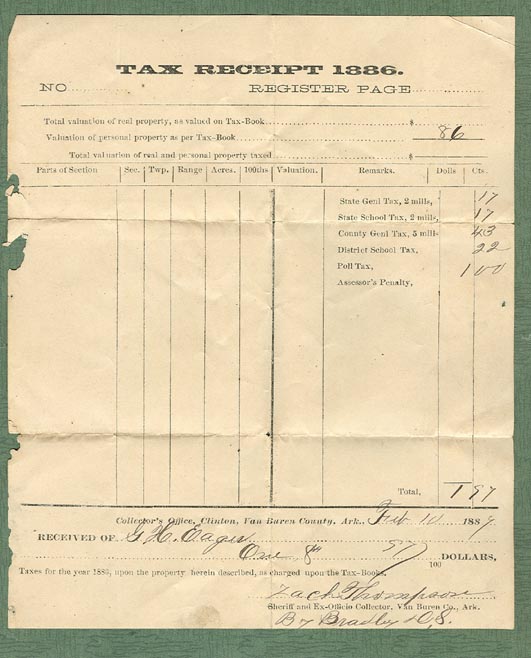 TAX RECEIPT 1886.
NO REGISTER PAGE
Total valuation of real property, as valued on Tax-Book $
Valuation of personal property as per Tax-Book 86
Total valuation of real and personal property taxed $
Parts of Section Sec. Twp. Range Acres. 100ths Valuation. Remarks. Dolls Cts.
State Genl Tax, 2 mills, 17
State School Tax, 2 mills, 17
County Genl Tax, 5 mills 43
District School Tax, 22
Poll Tax, 1 00
Assessor's Penalty,
Total, 1 97
Collector's Office, Clinton, Van Buren County, Ark., Feb 10 1887
RECEIVED OF G H. Eager
One & 97/100 DOLLARS,
Taxes for the year 1886, upon the property herein described, as charged upon the Tax-Books.
Zach Thompson
Sheriff and Ex-Officio Collector, Van Buren Co., Ark.
By Bradley D.S.